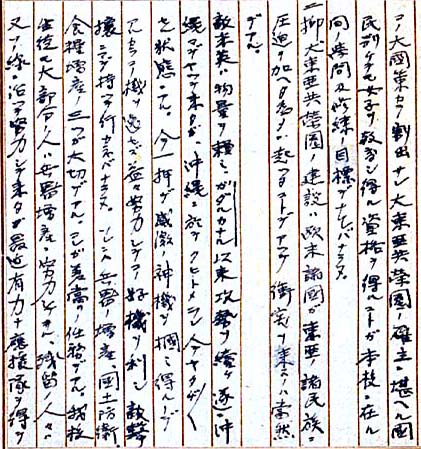 コノ大國策カラ割出サレ大東亜共榮圏ノ確立ニ堪ヘル國
民 女子ヲ教 シ得ル資格ヲ得ルコトガ本校ニ在ル
間ノ學問及修練ノ目標デナケレバナラヌ。
二 抑、大東亜共榮圏ノ建設ハ欧米諸國ガ東亜ノ諸民族ニ
圧迫ヲ加ヘタ為メニ起ツタコトデアツテ衝突ヲ来スハ当然
デアル。
敵米英ハ物量ヲ頼ミ、ガダルカナル以来攻勢ヲ續ケ遂ニ沖
縄マデヤツテ来タガ、沖縄ニ於テクヒトメラレ今ヤタヂタヂ
ノ状態デアル。今一押デ感激ノ神機ヲ掴ミ得ルノデ
アルカラコノ機ヲ逸セズ益々努力シテコノ好機ヲ利シ敵撃
攘ニマデ持ツテ行カネバナラヌ。ソレニハ兵器ノ増産、國土防衛、
食糧増産ノ三ツガ大切デアル。コレガ差當リノ任務デアル。我校
生徒ノ大部分ノ人ハ兵器増産ニ努力シ、残留ノ人々ハ
又ソノ線ニ沿ツテ努力シテ来タガ最近有力ナ應援隊ヲ得テ